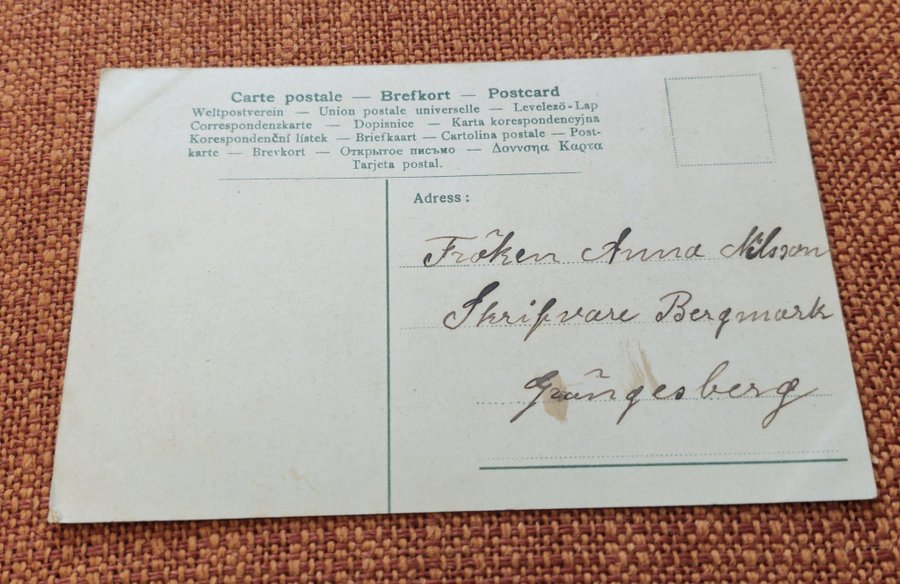 Carte postale — Brefkort — Postcard
Weltpostverein — Union postale universelle — Levelező-Lap
Correspondenzkarte — Dopisnice — Karta korespondencyjna
Korespondenční lístek — Briefkaart — Cartolina postale — Post-
karte — Brevkort — Открытое письмо — Δοννσηα Καρτα
Tarjeta postal.
Adress:
Fröken Anna Nilsson
Skrifvare Bergmark
Grängesberg